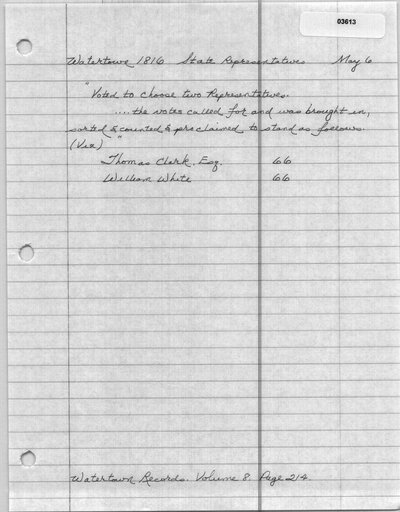 03613
Watertown 1816 State Representatives May 6
"Voted to choose two Representatives.
.... the votes called for and was brought in,
sorted & counted & proclaimed to stand as follows.
(Viz) "
Thomas Clark, Esq. 66
William White 66
Watertown Records. Volume 8. Page 214.